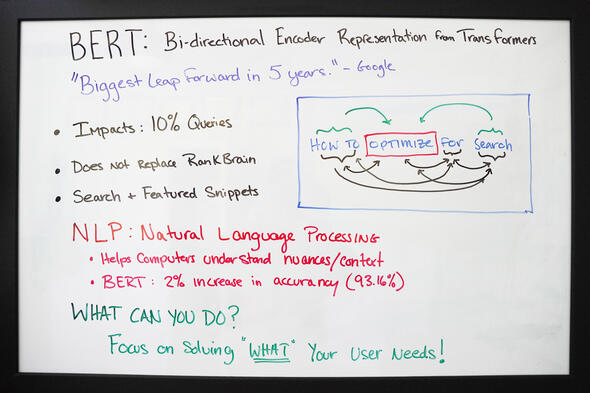 BERT: Bi-directional Encoder Representation from Transformers
"Biggest Leap Forward in 5 years." - Google
• Impacts: 10% Queries
• Does Not Replace RankBrain
• Search + Featured Snippets
How To Optimize For Search
NLP: Natural Language Processing
• Helps Computers understand nuances/context
• BERT: 2% increase in accuracy (93.16%)
WHAT CAN YOU DO?
Focus on Solving "WHAT" Your User Needs!